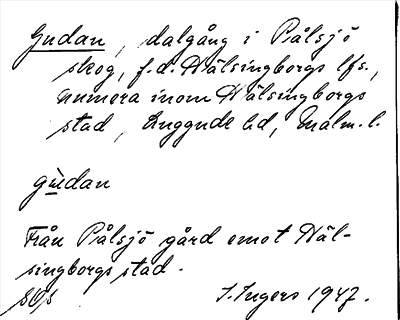 Gudan, dalgång i Pålsjö
skog, f.d. Hälsingborgs lfs.,
numera inom Hälsingborgs
stad, Luggude hd, Malm. l.
gùdan
Från Pålsjö gård emot Häl-
singborgs stad.
I. Ingers 1947.